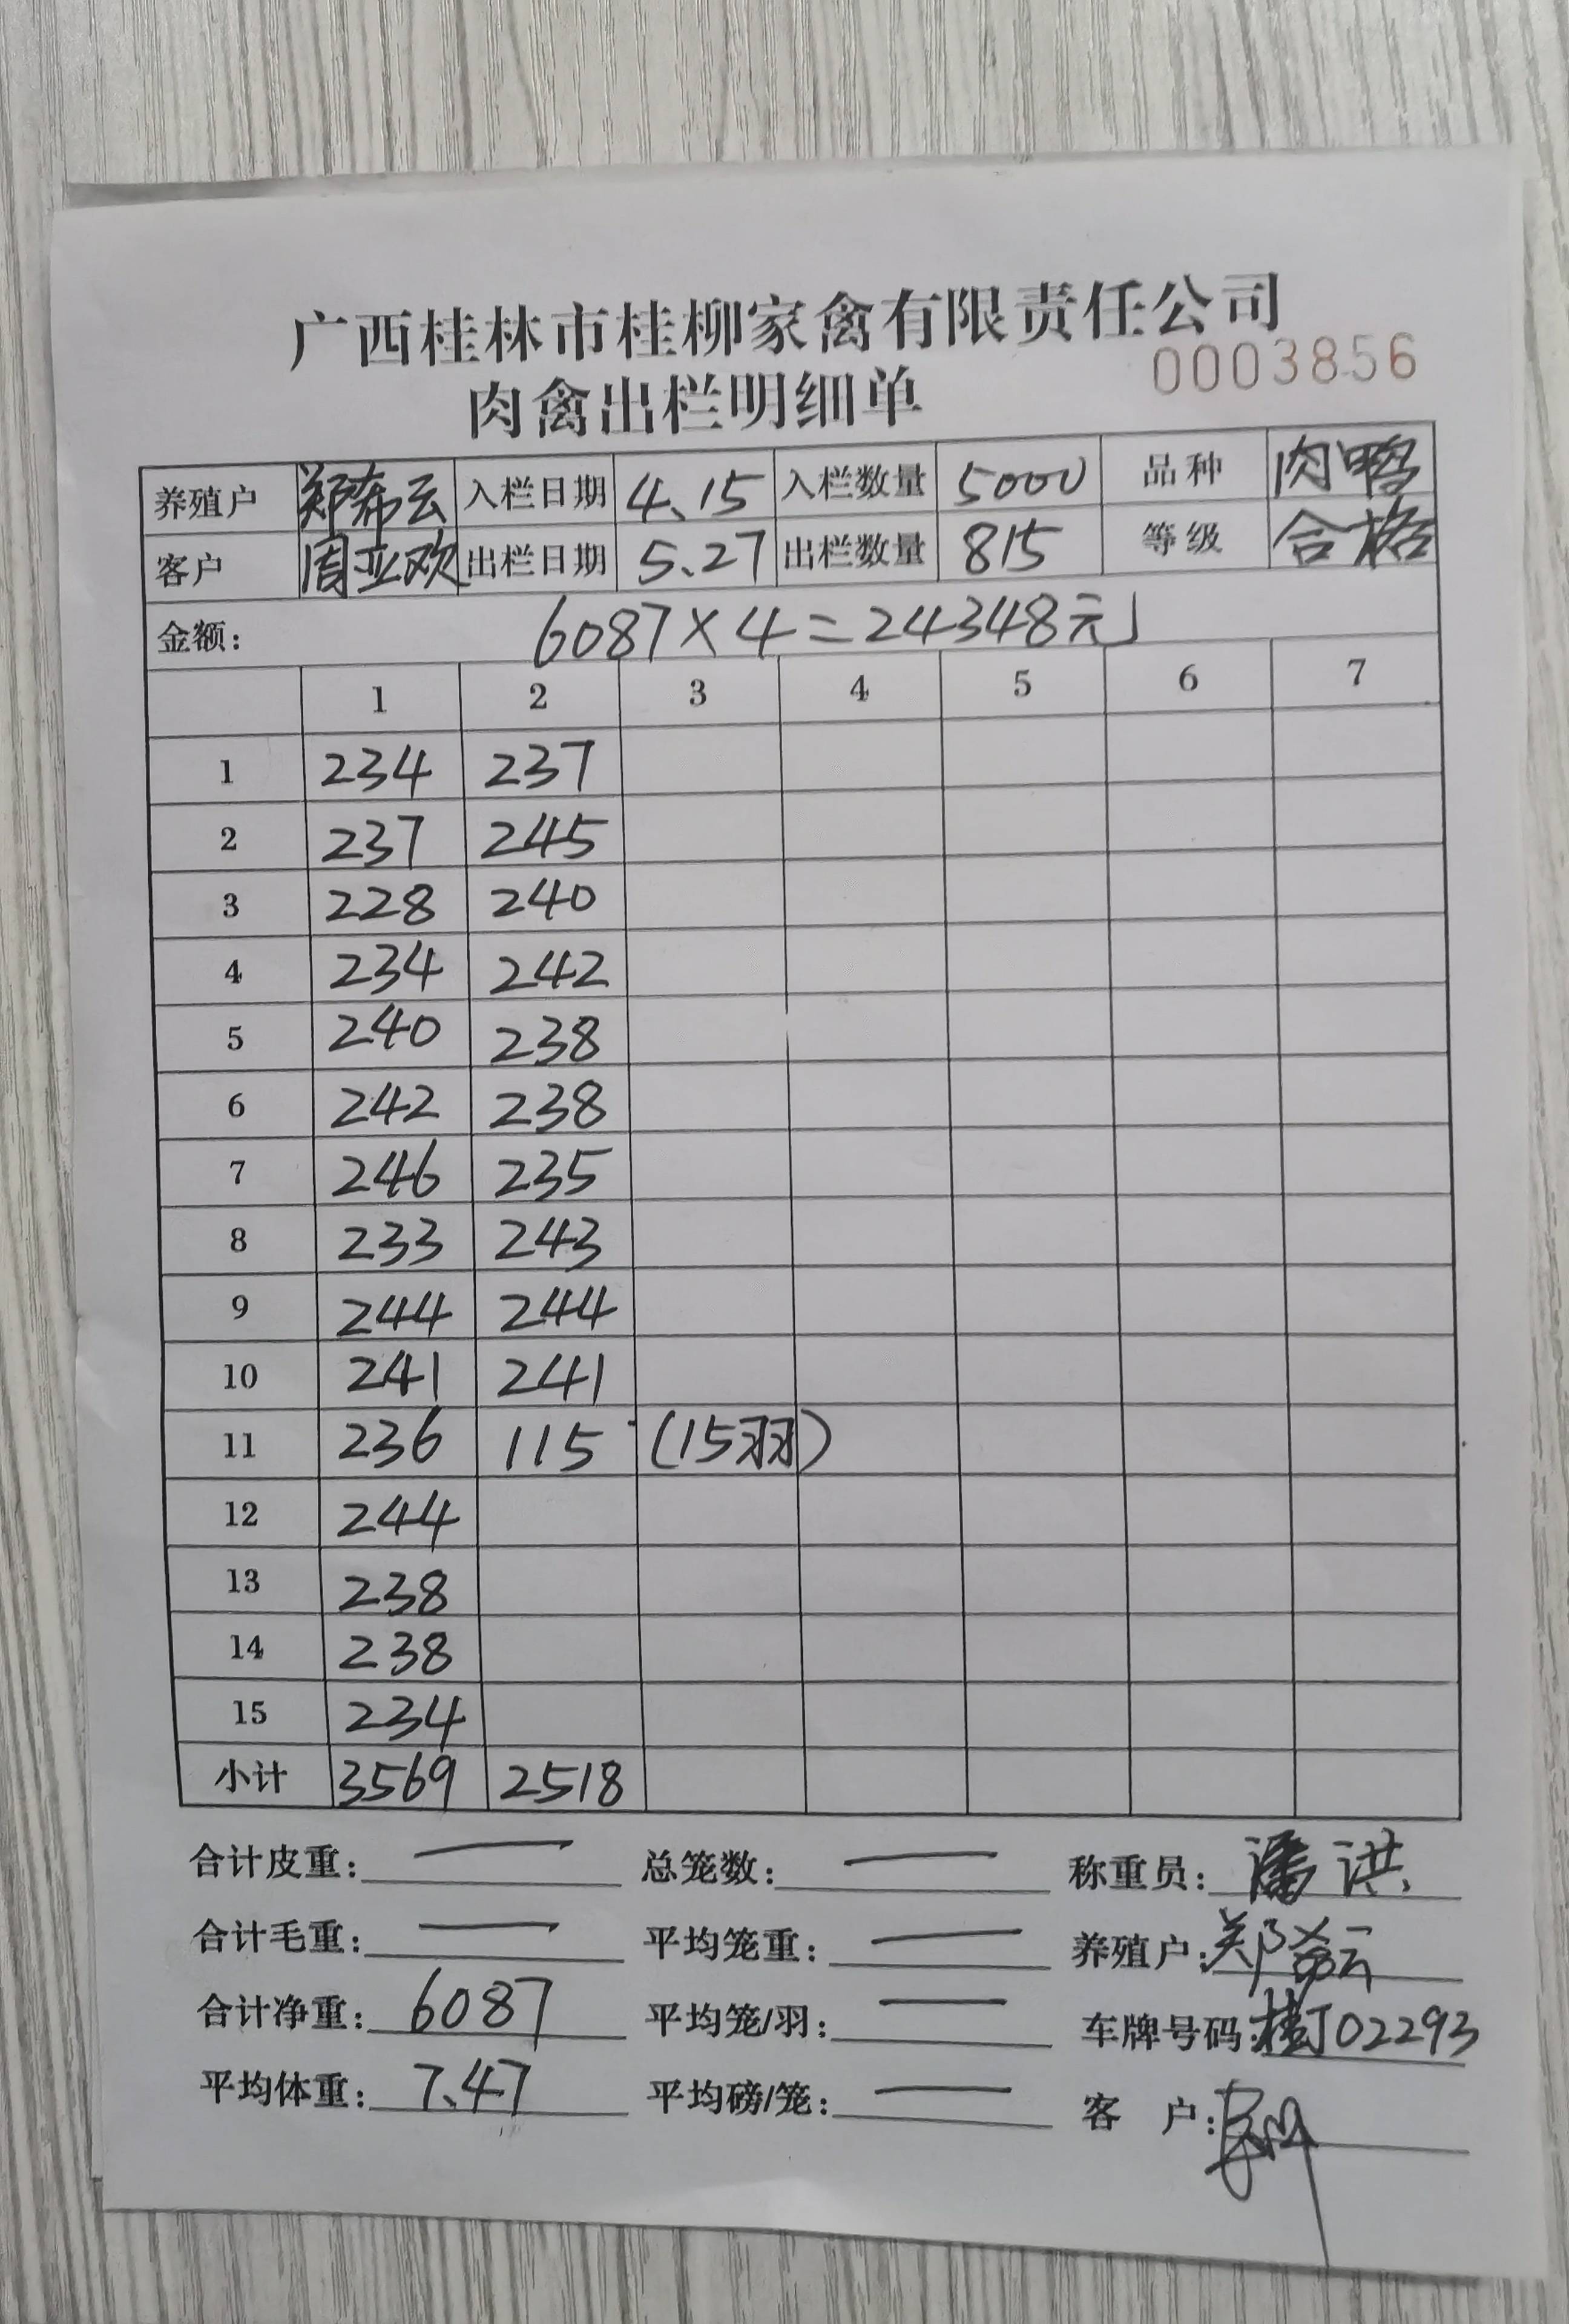 广西桂林市桂柳家禽有限责任公司
0003856
肉禽出栏明细单
养殖户 郑希云 入栏日期 4.15 入栏数量 5000 品种 肉鸭
客户 周亚欢 出栏日期 5.27 出栏数量 815 等级 合格
金额: 6087×4=24348元
1 2 3 4 5 6 7
1 234 237
2 237 245
3 228 240
4 234 242
5 240 238
6 242 238
7 246 235
8 233 243
9 244 244
10 241 241
11 236 115 (15羽)
12 244
13 238
14 238
15 234
小计 3569 2518
合计皮重: — 总笼数: — 称重员: 潘洪
合计毛重: — 平均笼重: — 养殖户: 郑希云
合计净重: 6087 平均笼/羽: — 车牌号码: 桂J02293
平均体重: 7.47 平均磅/笼: — 客 户: